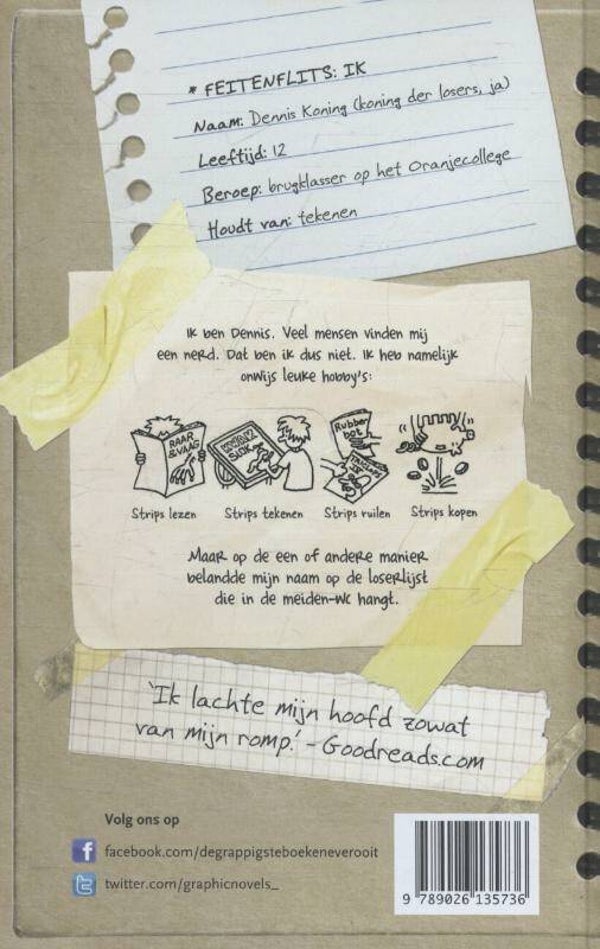 * FEITENFLITS: IK
Naam: Dennis Koning (koning der losers, ja)
Leeftijd: 12
Beroep: brugklasser op het Oranjecollege
Houdt van: tekenen
Ik ben Dennis. Veel mensen vinden mij
een nerd. Dat ben ik dus niet. Ik heb namelijk
onwijs leuke hobby's:
RAAR
&VAAG
Rubber
bot
Strips lezen Strips tekenen Strips ruilen Strips kopen
Maar op de een of andere manier
belandde mijn naam op de loserlijst
die in de meiden-wc hangt.
'Ik lachte mijn hoofd zowat
van mijn romp.' - Goodreads.com
Volg ons op
f facebook.com/degrappigsteboekeneverooit
t twitter.com/graphicnovels_
9 789026 135736